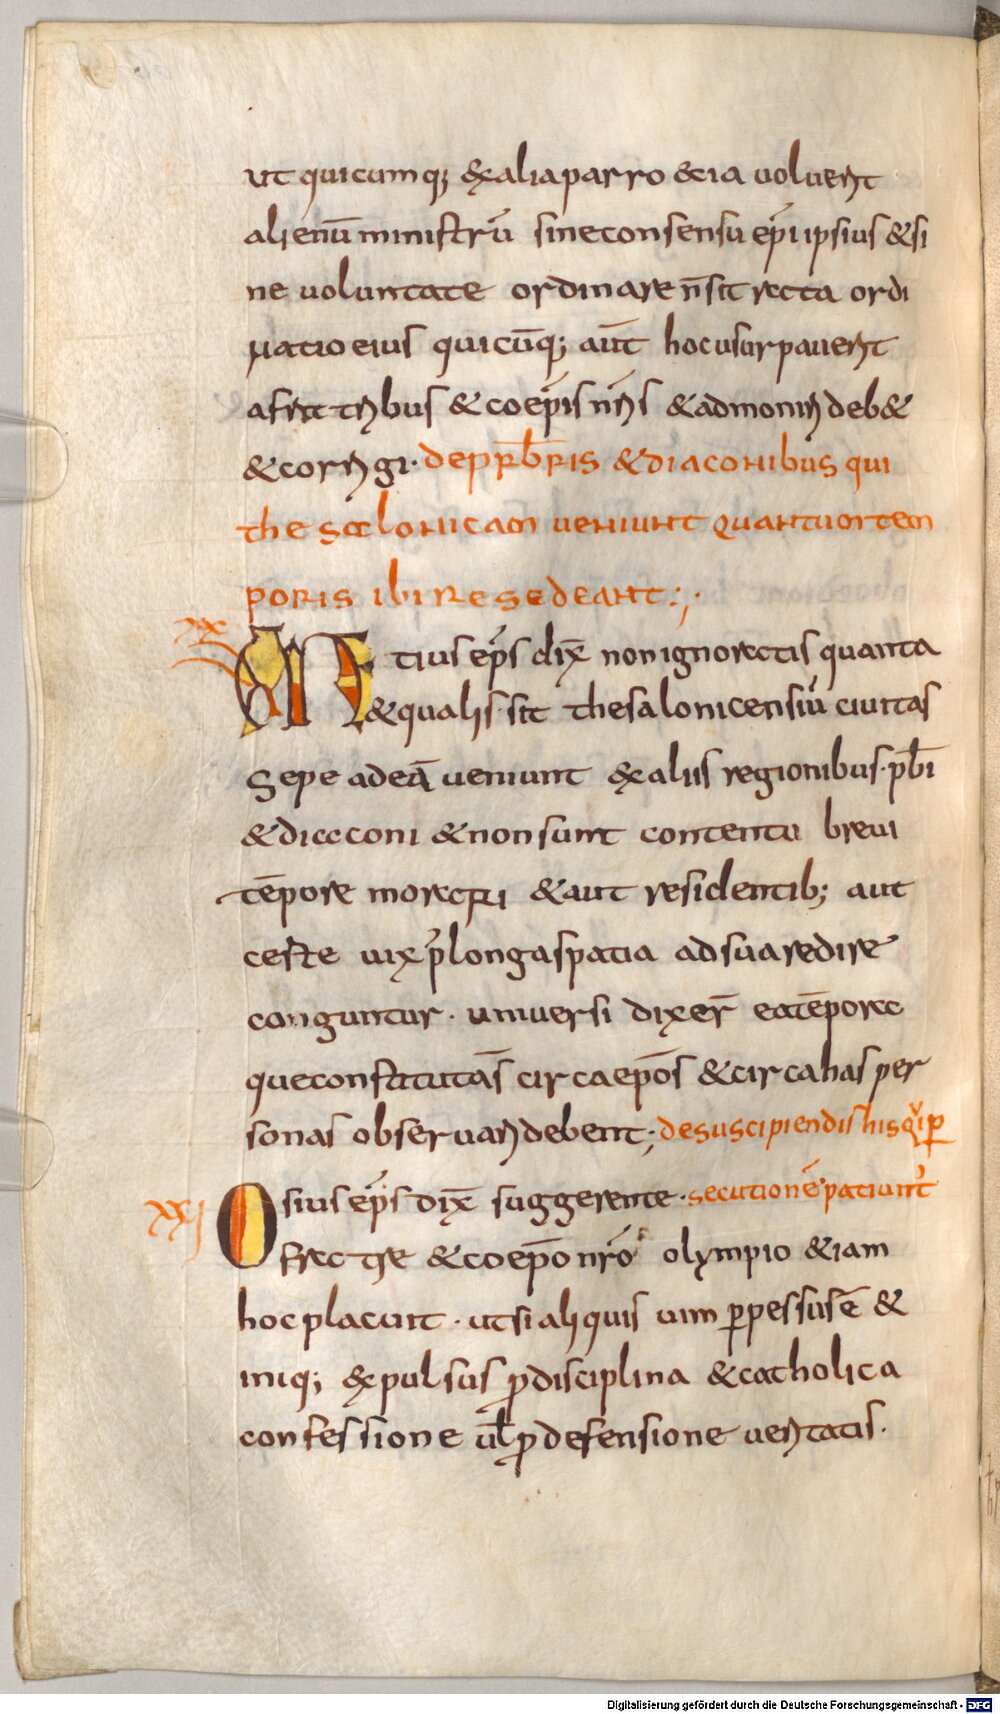 ut quicumq; & xaliaparro &cia uoluerit
alienū ministrū sineconsensu ep̄i ipsius &si
ne uoluntate ordinare n̄sit recta ordi
natio eius quicūq; aūt hocusurpauerit
afratribus &coep̄is nr̄is &admoneri deb&
&corrigi· deprb̄ris &diaconibus qui
thesalonicam ueniunt quantum tem
poris ibi resedeant:;·
xx
AEtius ep̄s dix̄ nonignoratis quanta
&qualis·sit thesalonicensiū ciuitas
Sepe adeā ueniunt &xaliis regionibus·pb̄i
&diaconi &nonsunt contenti breui
tēpore morari &aut resident ib; aut
certe uix p̄longaspatia adsuaredire
conguntur· uniuersi dixer̄ eatēpora
queconstitutas̄ circaep̄os &circahas per
sonas obseruari debent·; desuscipiendis his qͥ ꝑ
xxi
Osius ep̄s dix̄ suggerente· secutionē patiunt᷑
fratre &coep̄o nr̄o olympio &iam
hocplacuit· utsialiquis uim ꝑpessusē &
iniq; &xpulsus ꝓdisciplina &catholica
confessione ul̄ ꝓdefensione ueritatis·
Digitalisierung gefördert durch die Deutsche Forschungsgemeinschaft - DFG